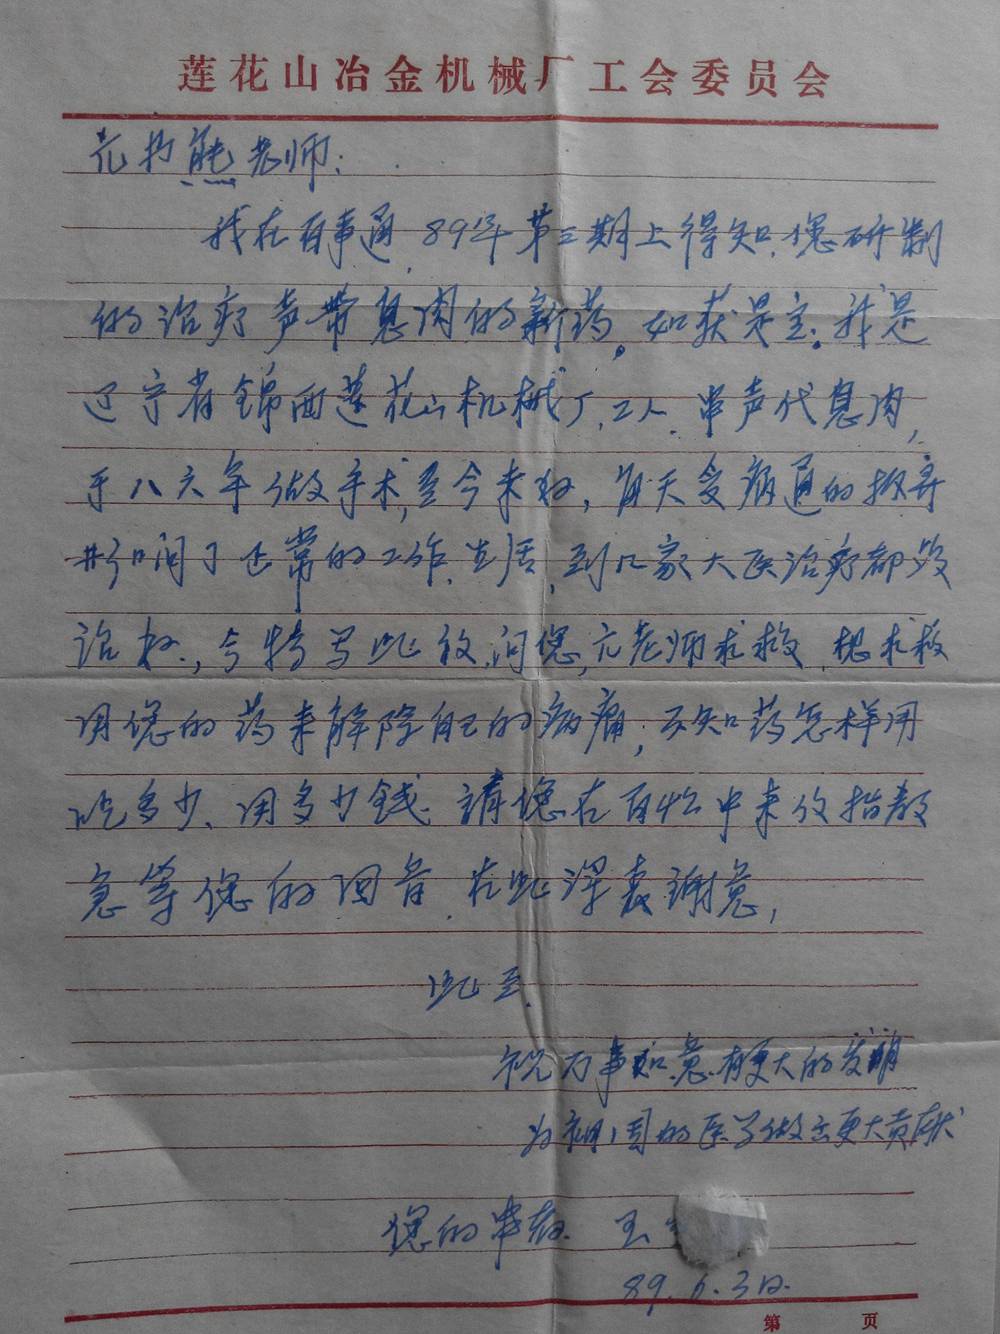 莲花山冶金机械厂工会委员会
老师：
我在百事通，89年第三期上得知，您研制
的治疗声带息肉的新药。如获是宝。我是
辽宁省锦西莲花山机械厂，工人，串声代息肉，
于八六年做手术，至今未好，每天受病通的
了正常的工作、生活，到几家大医治疗都没
治好，今特写此致问您，亢老师求救，想求救
用您的药来解除自己的病痛，不知药怎样用
吃多少、用多少钱 请您在百忙中来指教
急等您的回音，在此深表谢意，
此至
祝万事如意、有更大的发明
为祖国的医学做出更大贡献
您的 王
89.6.3日.
第 页